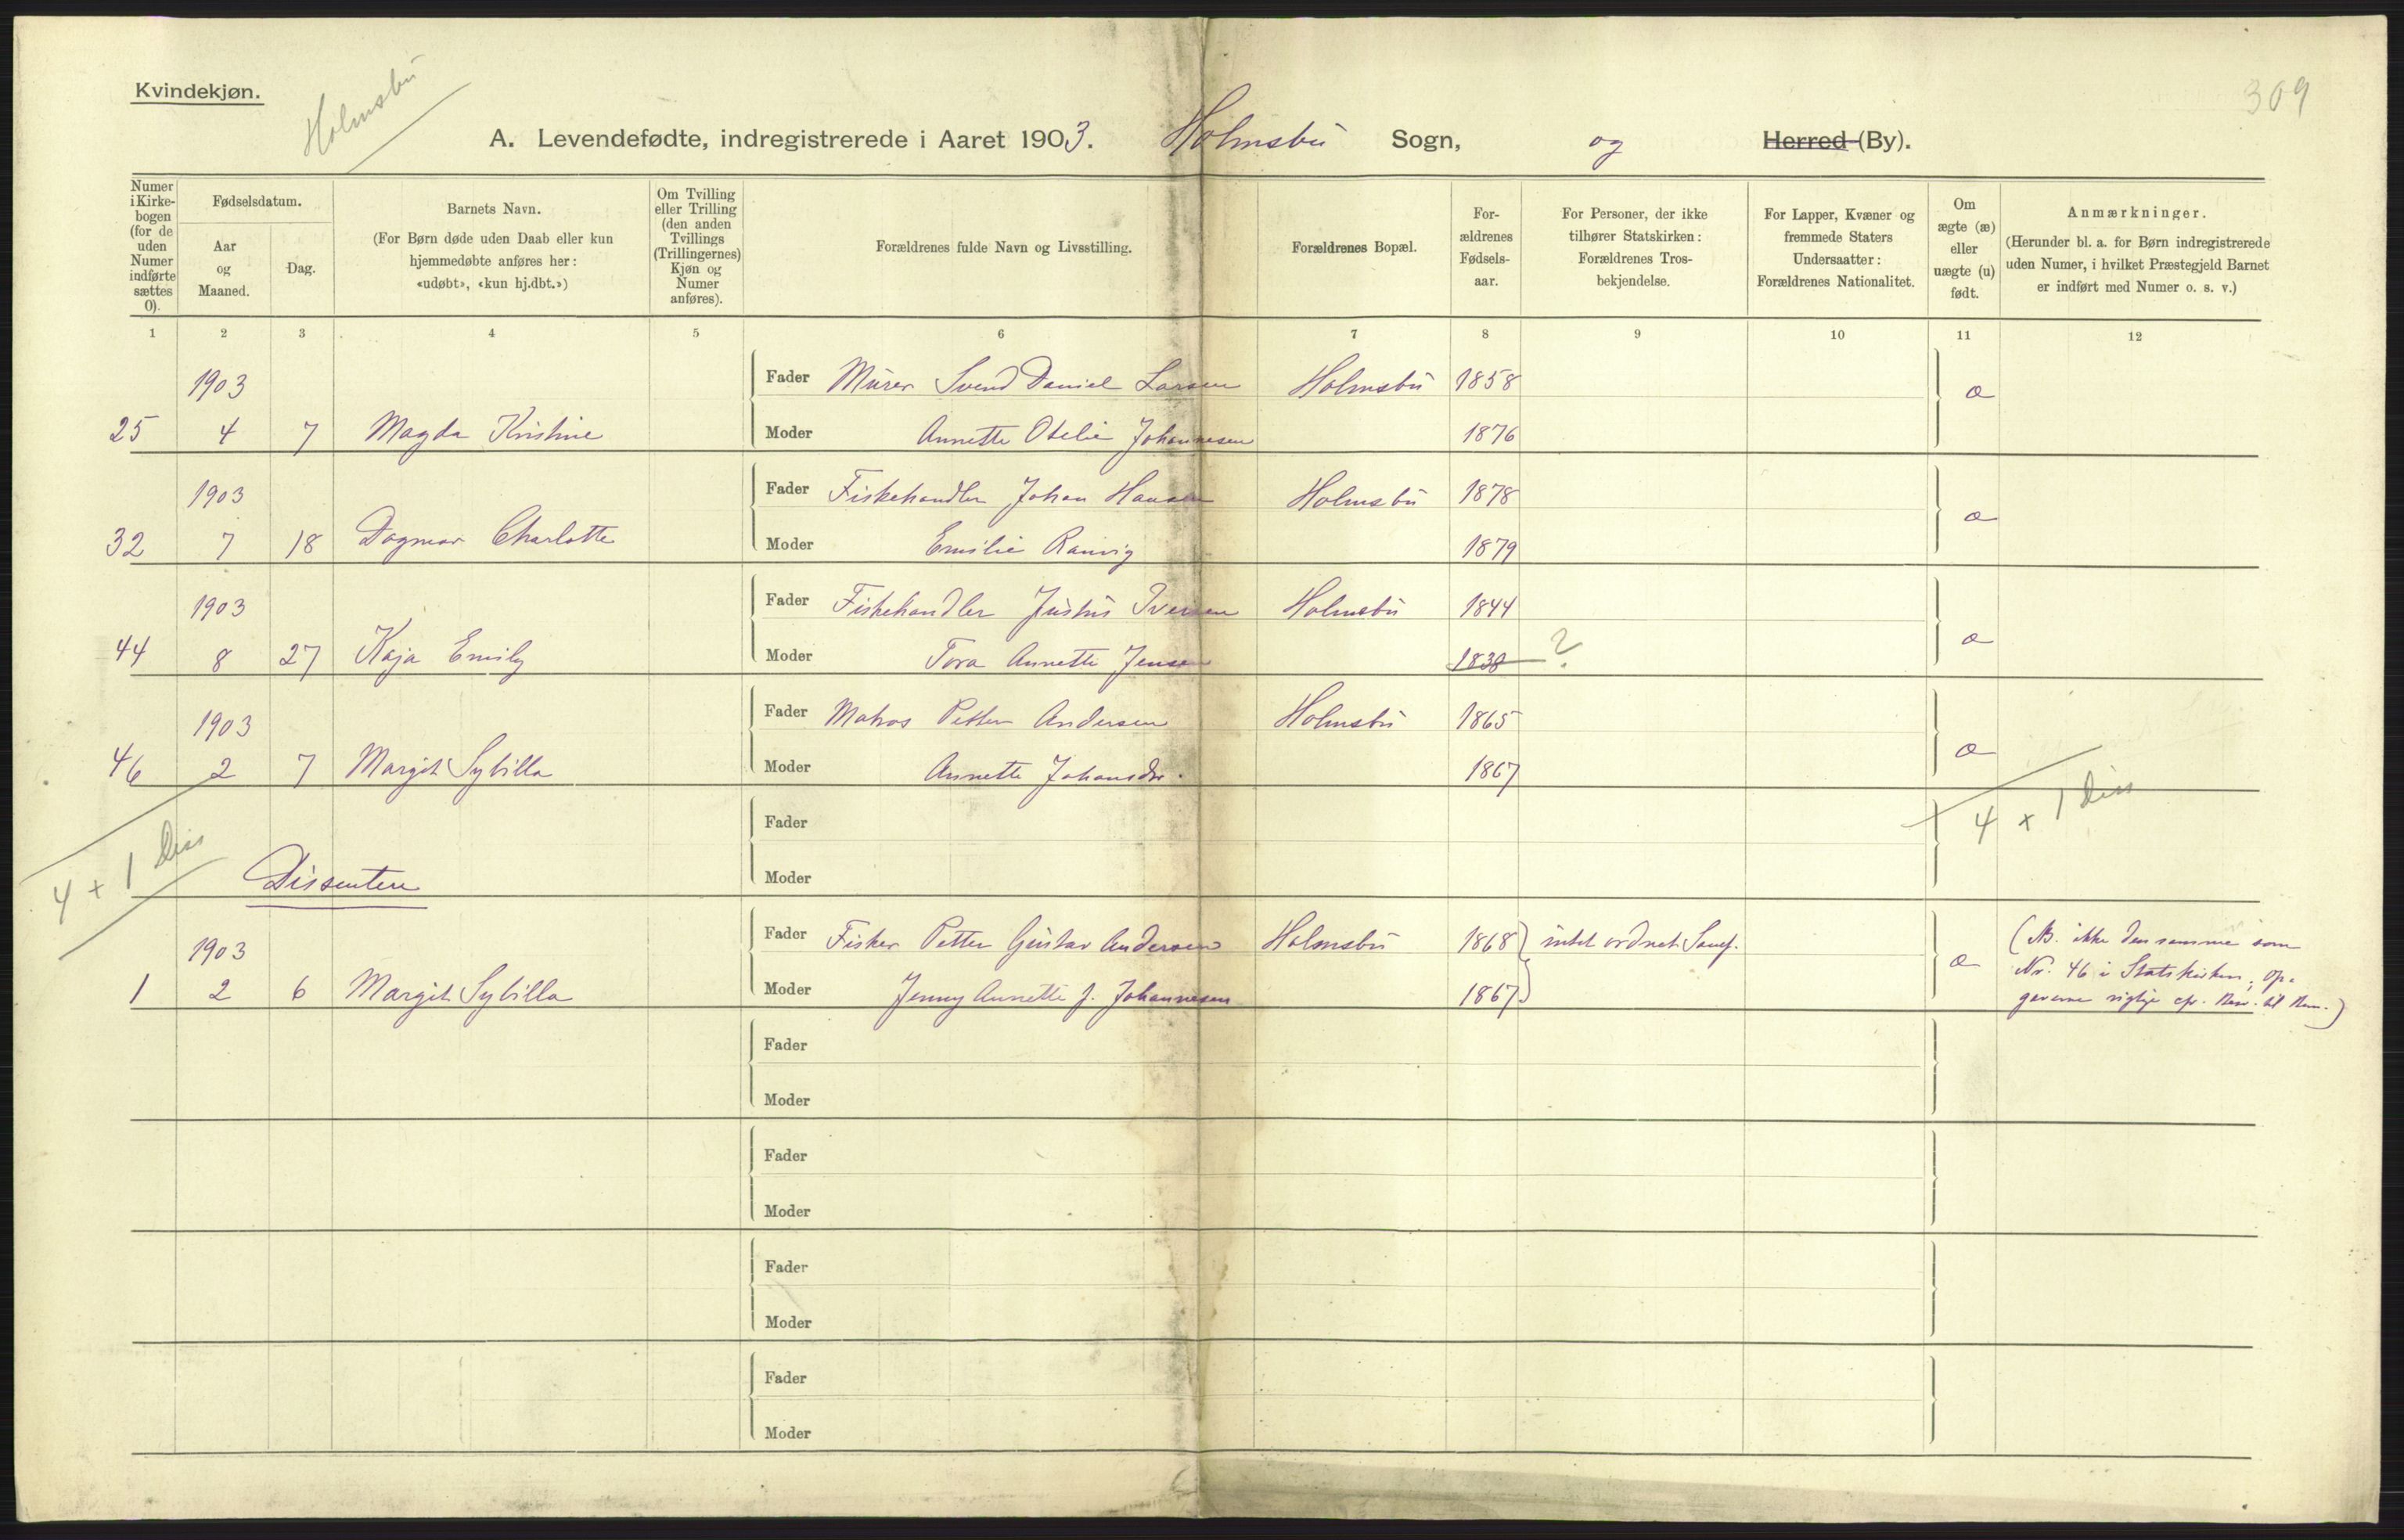 Kvindekjøn.
Holmsbu
309
A. Levendefødte, indregistrerede i Aaret 1903. Holmsbu Sogn, og Herred (By).
Numer i Kirke-bogen (for de uden Numer indførte sættes 0).
Fødselsdatum.
Aar og Maaned.
Dag.
Barnets Navn.
(For Børn døde uden Daab eller kun hjemmedøbte anføres her: «udøbt», «kun hj.dbt.»)
Om Tvilling eller Trilling (den anden Tvillings (Trillingernes) Kjøn og Numer anføres).
Forældrenes fulde Navn og Livsstilling.
Forældrenes Bopæl.
For-ældrenes Fødsels-aar.
For Personer, der ikke tilhører Statskirken: Forældrenes Tros-bekjendelse.
For Lapper, Kvæner og fremmede Staters Undersaatter: Forældrenes Nationalitet.
Om ægte (æ) eller uægte (u) født.
Anmærkninger.
(Herunder bl. a. for Børn indregistrerede uden Numer, i hvilket Præstegjeld Barnet er indført med Numer o. s. v.)
1 2 3 4 5 6 7 8 9 10 11 12
1903 Fader Murer Svend Daniel Larsen Holmsbu 1858 æ
25 4 7 Magda Kristine Moder Annette Otelie Johannesen 1876
1903 Fader Fiskehandler Johan Hansen Holmsbu 1878 æ
32 7 18 Dagmar Charlotte Moder Emilie Ranvig 1879
1903 Fader Fiskehandler Justus Iversen Holmsbu 1844 æ
44 8 27 Kaja Emily Moder Tora Annette Jensen 1838 ?
1903 Fader Matros Petter Andersen Holmsbu 1865 æ
46 2 7 Margit Sybilla Moder Annette Johansdr. 1867
Fader
4 + 1 Diss
4 + 1 Diss
Dissentere Moder
1903 Fader Fisker Petter Gustav Andersen Holmsbu 1868 intet ordnet Samf. æ
1 2 6 Margit Sybilla Moder Jenny Annette f. Johannesen 1867
(NB. ikke den samme som
Nr. 46 i Statskirken; op-
gaverne rigtige
Fader
Moder
Fader
Moder
Fader
Moder
Fader
Moder